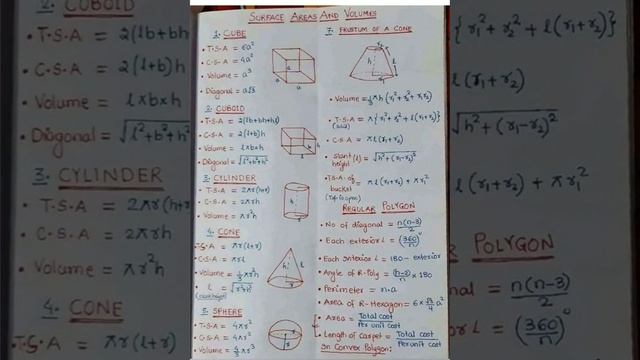 SURFACE AREAS AND VOLUMES
1. CUBE
• T.S.A = 6a²
• C.S.A = 4a²
• Volume = a³
• Diagonal = a√3
a
a
a
2. CUBOID
• T.S.A = 2(lb+bh+hl)
• C.S.A = 2(l+b)h
• Volume = l×b×h
• Diagonal = √l²+b²+h²
h
b
l
3. CYLINDER
• T.S.A = 2πr(h+r)
• C.S.A = 2πrh
• Volume = πr²h
h
r
4. CONE
T.S.A = πr(l+r)
C.S.A = πrl
• Volume = 1/3 πr²h
l = √r²+h²
(slant height)
h
l
r
5. SPHERE
• T.S.A = 4πr²
• C.S.A = 4πr²
• Volume = 4/3 πr³
r
7. FRUSTUM OF A CONE
r₂
h
l
r₁
• Volume = 1/3 πh (r₁²+r₂²+r₁r₂)
• T.S.A = π{r₁²+r₂²+l(r₁+r₂)}
• C.S.A = πl(r₁+r₂)
• Slant height (l) = √h²+(r₁-r₂)²
• TSA of bucket = πl(r₁+r₂)+πr₁²
REGULAR POLYGON
• No of diagonal = n(n-3)/2
• Each exterior L = (360/n)°
• Each Interior L = 180 - exterior
• Angle of R-Poly = (n-2)/n × 180
• Perimeter = n.a
• Area of R-Hexagon = 6×√3/4 a²
• Area = Total cost/Per unit cost
• Length of carpet = Total cost/Per unit cost
In Convex Polygon:
2. CUBOID
• T.S.A = 2(lb+b
• C.S.A = 2(l+b)h
Volume = l×b×h
Diagonal = √l²+b²+h²
3. CYLINDER
T.S.A = 2πr(h+
C.S.A = 2πrh
Volume = πr²h
4. CONE
T.S.A = πr(l+r)
{r₁²+r₂²+l(r₁+r₂)}
l(r₁+r₂)
√h²+(r₁-r₂)²
l(r₁+r₂)+πr₁²
POLYGON
n(n-3)/2
L = (360/n)°